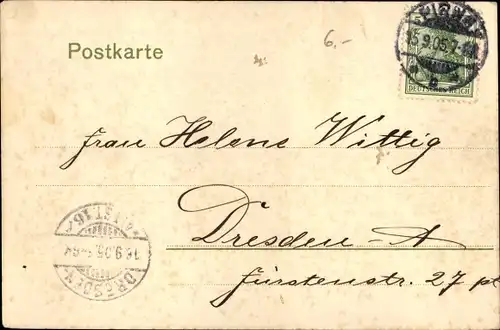 Postkarte
6.-
15.9.05.7-
DEUTSCHES REICH
Frau Helene Wittig
Dresden-A
Fürstenstr. 27 pt
16.9.05.
DRESDEN